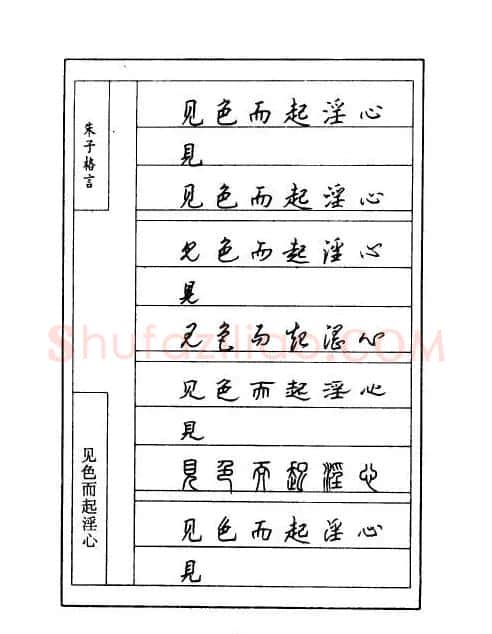 朱子格言
见色而起淫心
見
见色而起淫心
见色而起淫心
見
见色而起淫心
见色而起淫心
見
見色而起淫心
见色而起淫心
見
见色而起淫心
Shufaziliao.COM